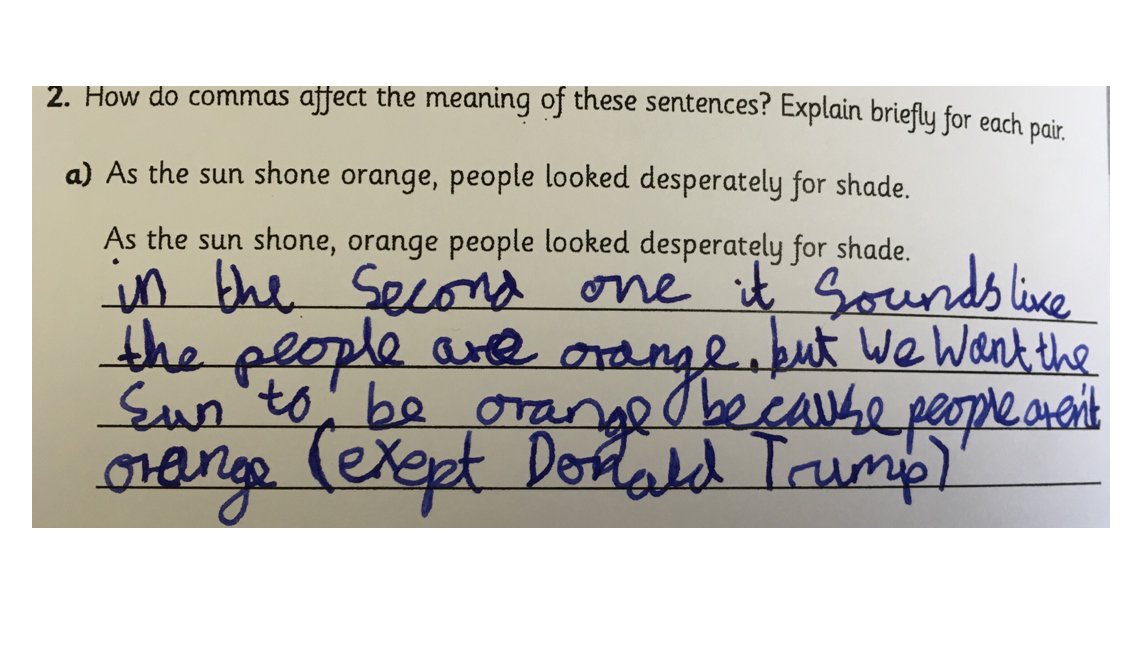 2. How do commas affect the meaning of these sentences? Explain briefly for each pair.
a) As the sun shone orange, people looked desperately for shade.
As the sun shone, orange people looked desperately for shade.
in the Second one it Sounds like
the people are orange. but We Want the
Sun to be orange because people aren't
orange (exept Donald Trump)